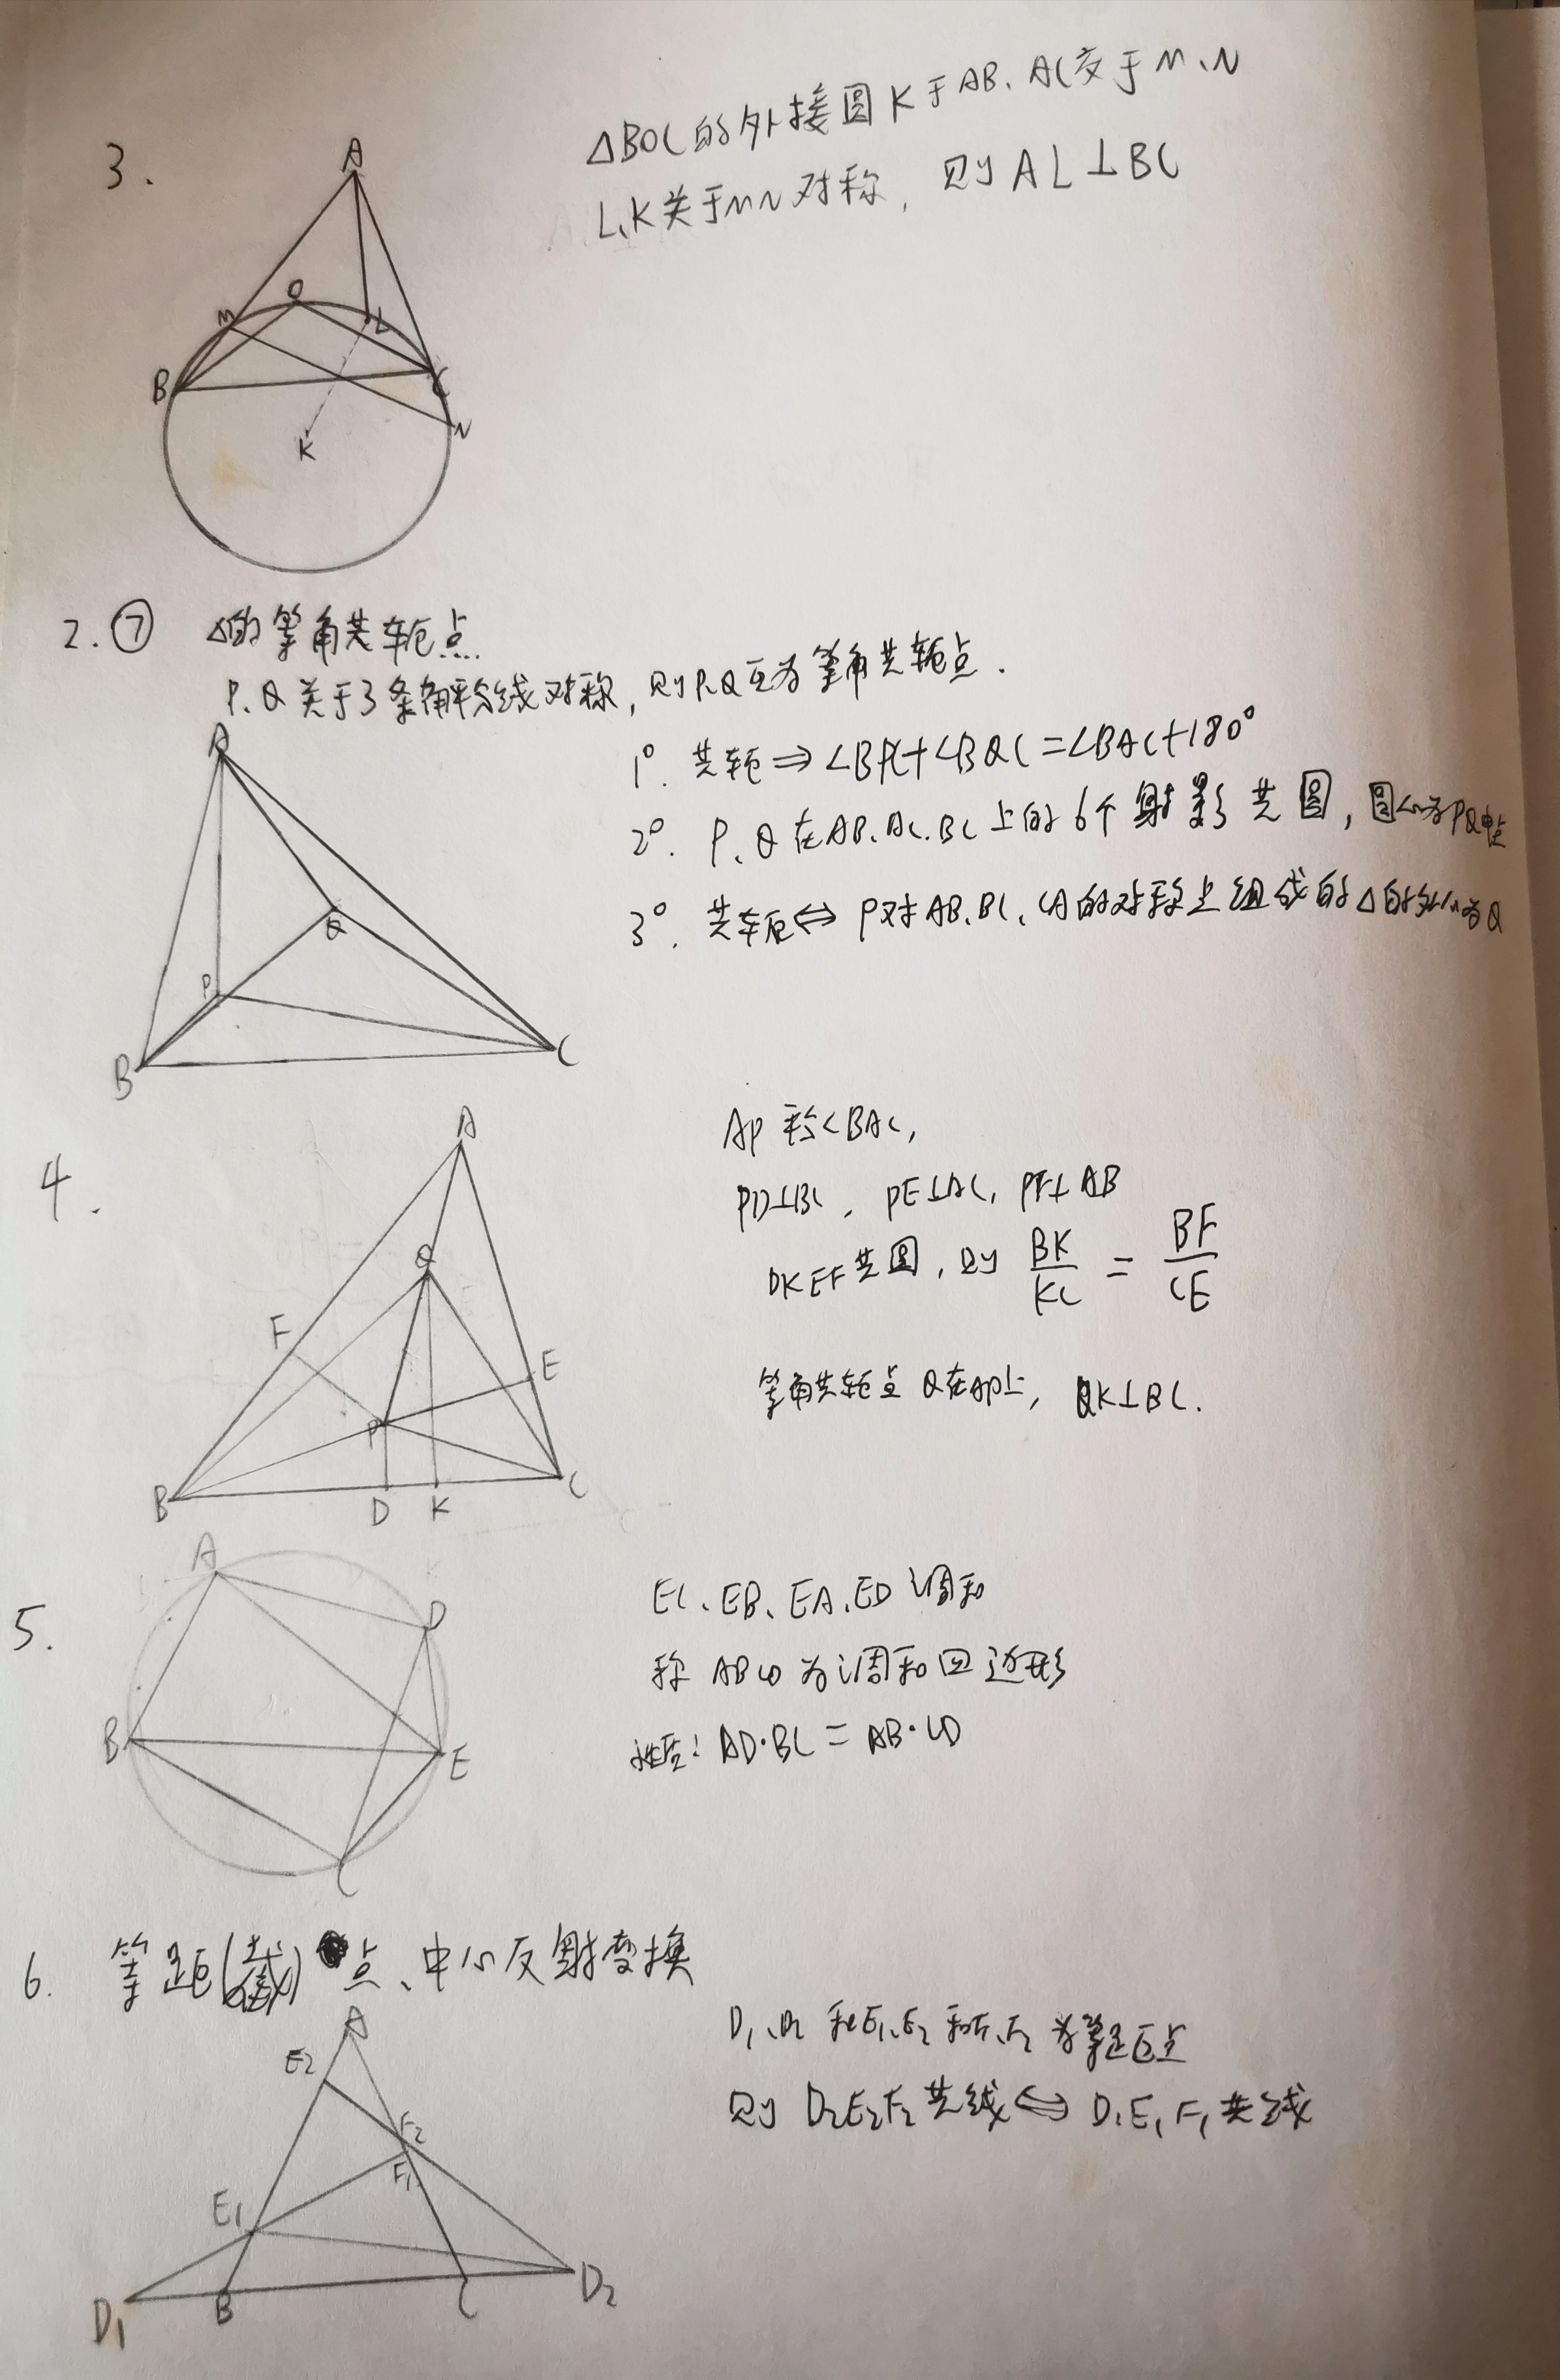 3.
△BOC的外接圆K于AB、AC交于M、N
L、K关于MN对称，则AL⊥BC
A
O
M
L
B
C
K
N
2.⑦ △的等角共轭点
P、Q关于3条角平分线对称，则P、Q互为等角共轭点.
1°. 共轭⇒∠BPC+∠BQC=∠BAC+180°
2°. P、Q在AB、AC、BC上的6个射影共圆，圆心为PQ中点
3°. 共轭⇔P对AB、BC、CA的对称点组成的△的外心为Q
A
Q
P
B
C
4.
AP平分∠BAC,
PD⊥BC, PE⊥AC, PF⊥AB
DKEF共圆，则 BK/KC = BF/CE
等角共轭点Q在AP上，QK⊥BC.
A
Q
F
E
P
B
C
D
K
5.
EC、EB、EA、ED调和
称ABCD为调和四边形
性质：AD·BC=AB·CD
A
D
B
E
C
6. 等距(截)点、中心反射变换
D₁、D₂和E₁、E₂和F₁、F₂为等距点
则D₂E₂F₂共线⇔D₁E₁F₁共线
A
E₂
F₂
F₁
E₁
D₁
B
C
D₂